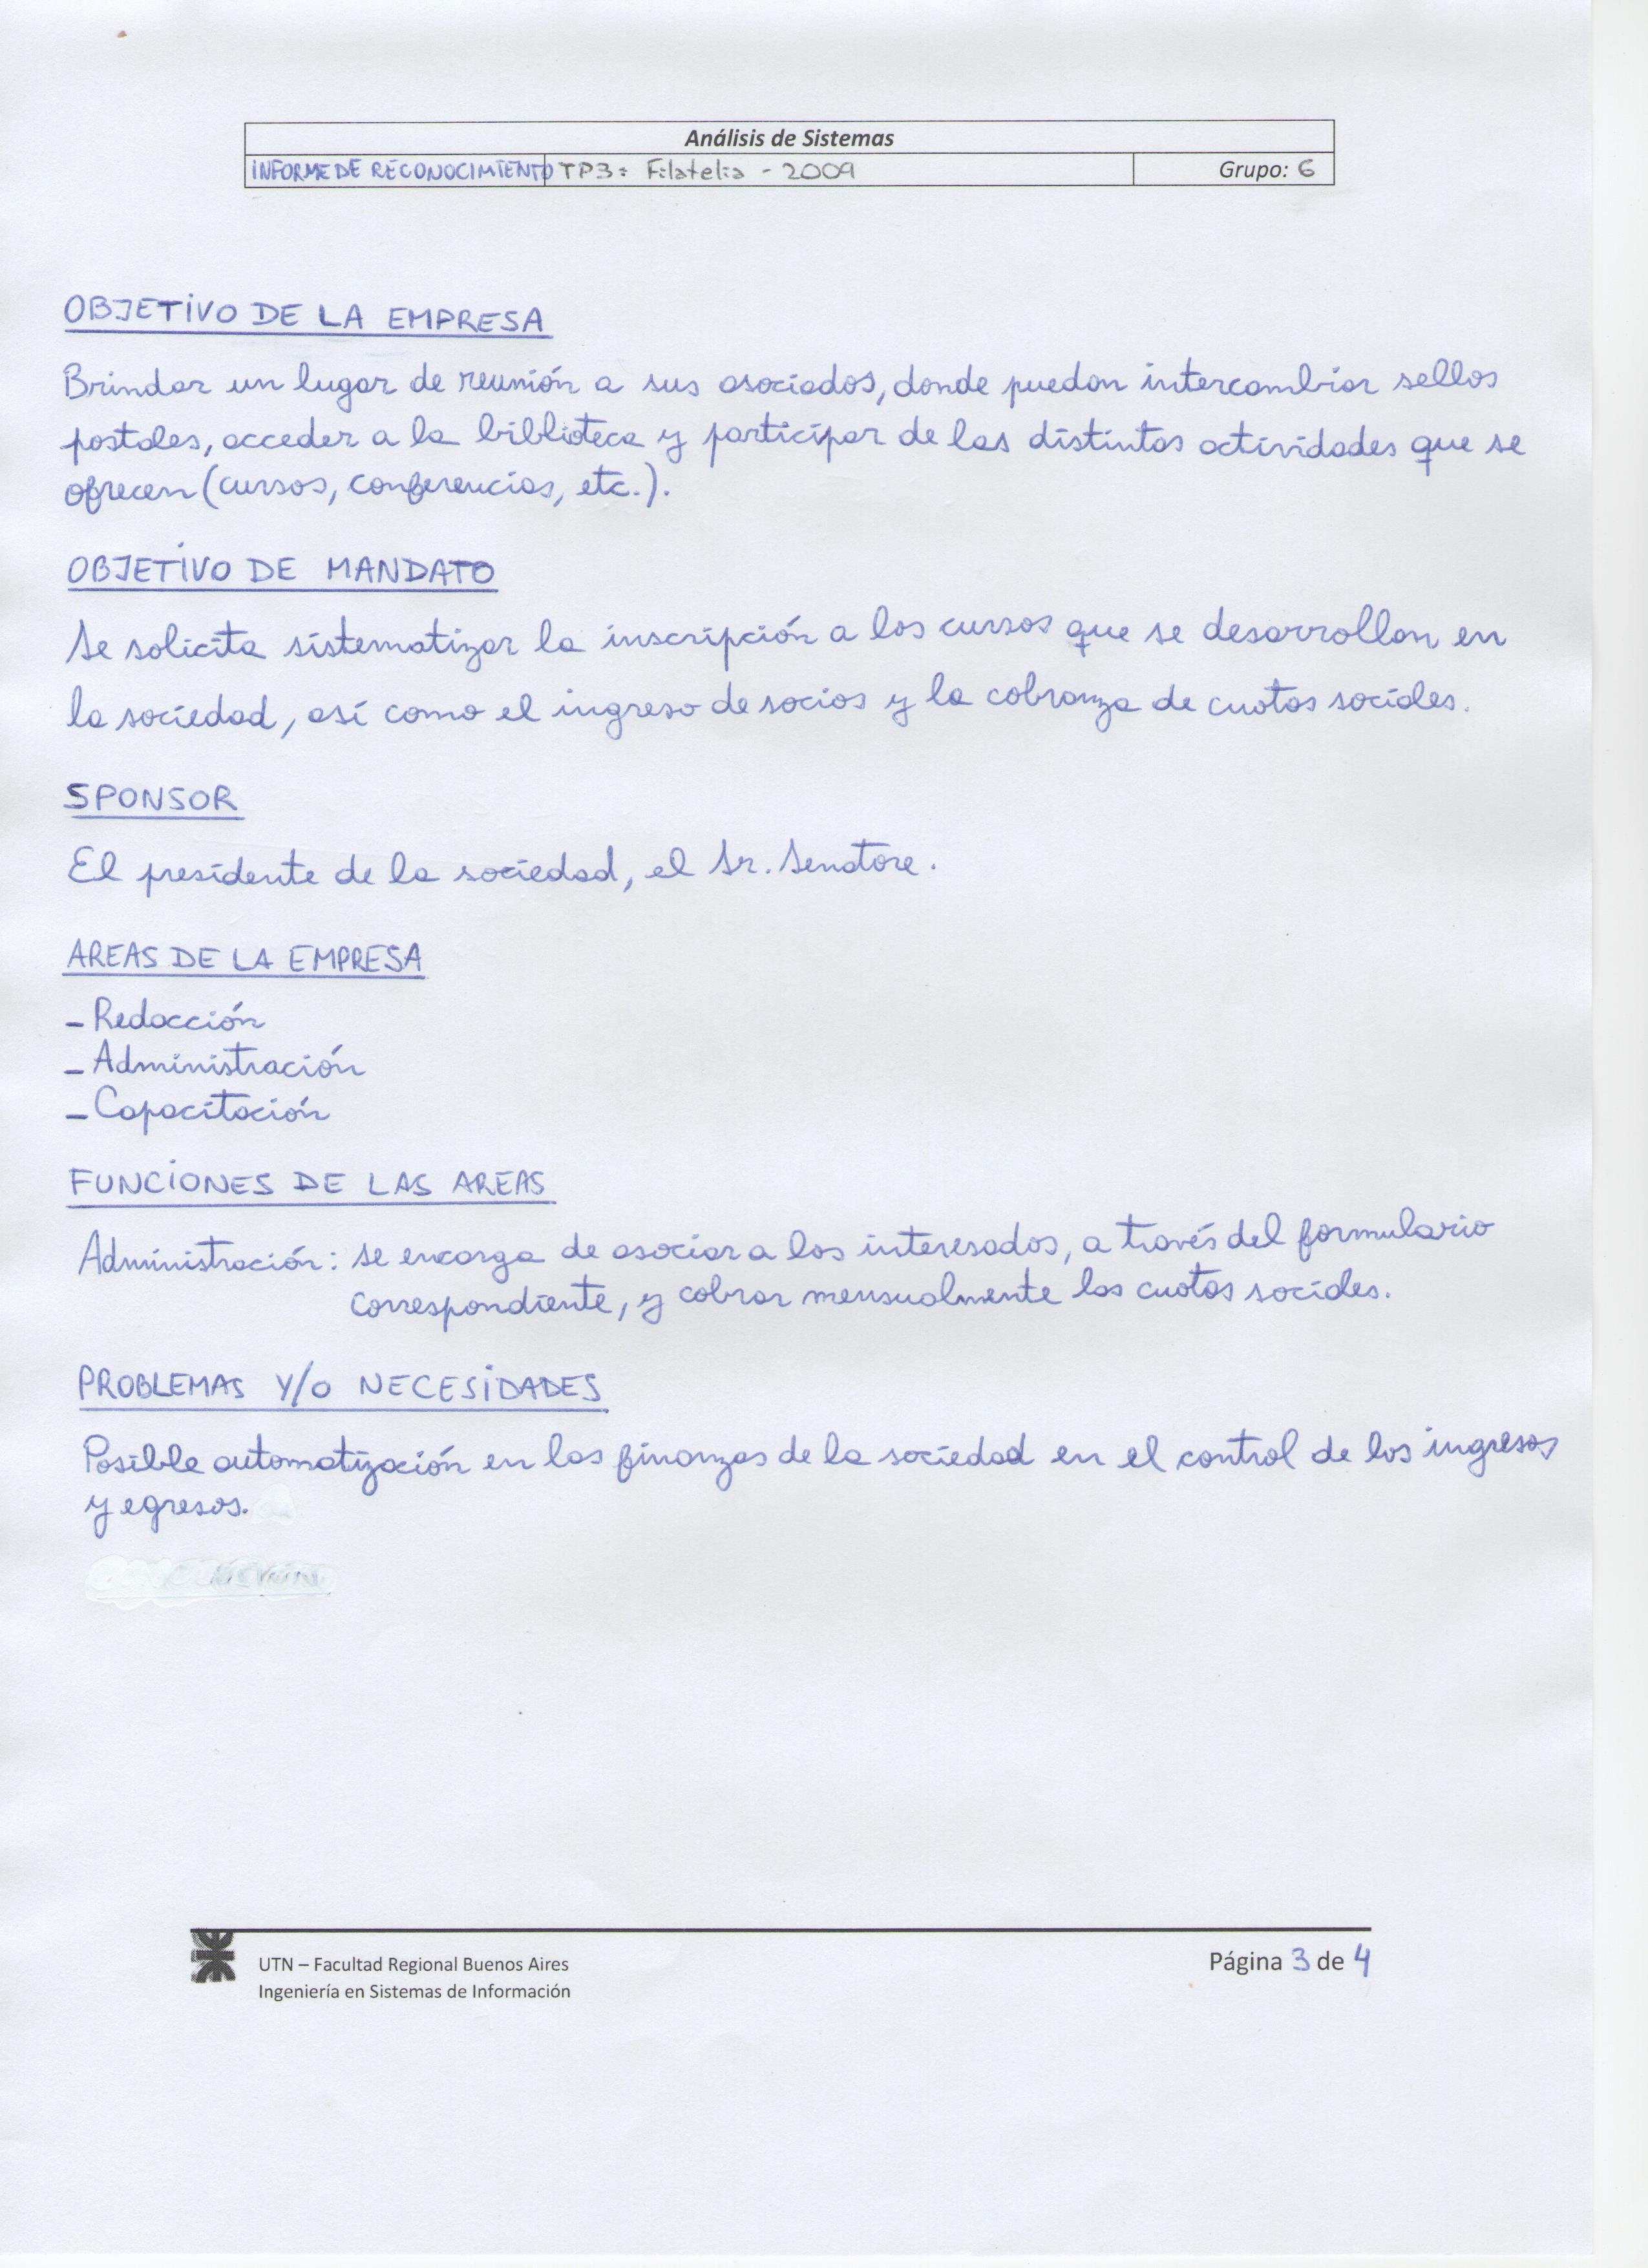 Análisis de Sistemas
INFORME DE RECONOCIMIENTO TP3: Filatelia - 2009 Grupo: 6
OBJETIVO DE LA EMPRESA
Brindar un lugar de reunión a sus asociados, donde puedan intercambiar sellos
postales, acceder a la biblioteca y participar de las distintas actividades que se
ofrecen (cursos, conferencias, etc.).
OBJETIVO DE MANDATO
Se solicita sistematizar la inscripción a los cursos que se desarrollan en
la sociedad, así como el ingreso de socios y la cobranza de cuotas sociales.
SPONSOR
El presidente de la sociedad, el Sr. Senatore.
AREAS DE LA EMPRESA
- Redacción
- Administración
- Capacitación
FUNCIONES DE LAS AREAS
Administración: se encarga de asociar a los interesados, a través del formulario
correspondiente, y cobrar mensualmente las cuotas sociales.
PROBLEMAS Y/O NECESIDADES
Posible automatización en las finanzas de la sociedad en el control de los ingresos
y egresos.
UTN – Facultad Regional Buenos Aires Página 3 de 4
Ingeniería en Sistemas de Información